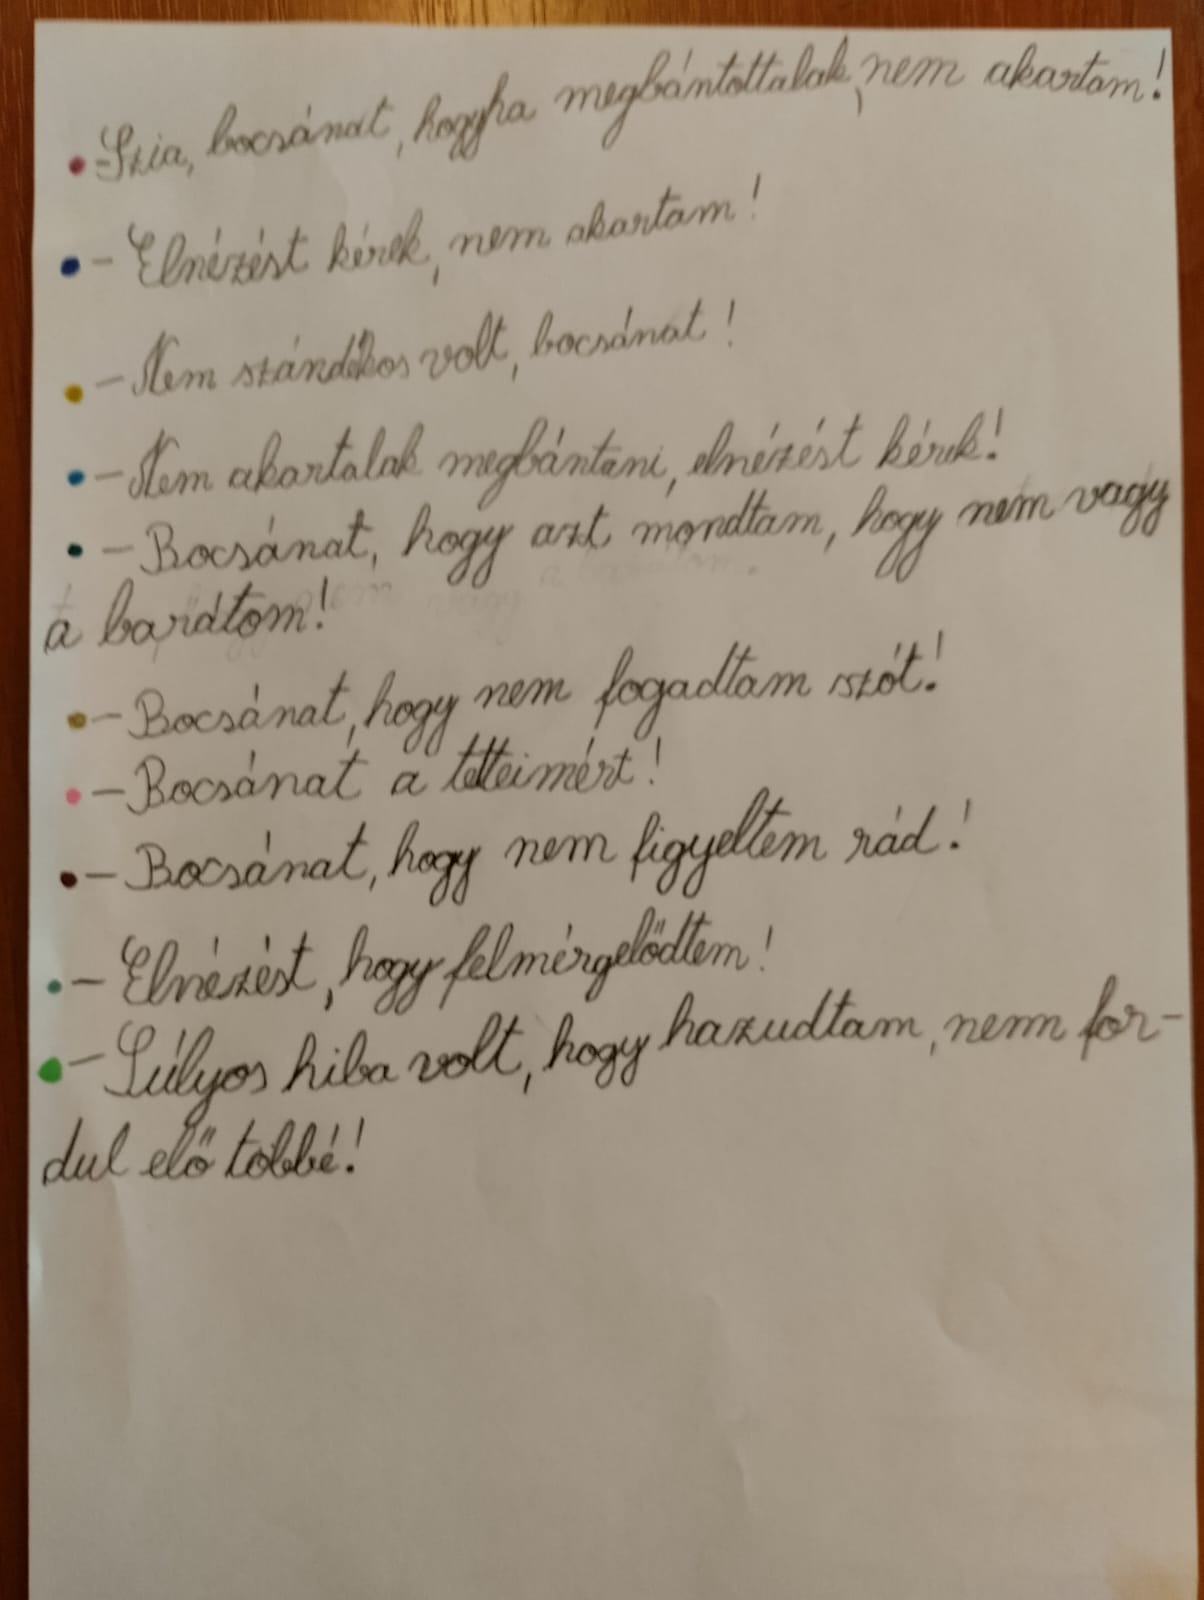 - Szia, bocsánat, hogyha megbántottalak, nem akartam!
- Elnézést kérek, nem akartam!
- Nem szándékos volt, bocsánat!
- Nem akartalak megbántani, elnézést kérek!
- Bocsánat, hogy azt mondtam, hogy nem vagy
a barátom!
- Bocsánat, hogy nem fogadtam szót!
- Bocsánat a tetteimért!
- Bocsánat, hogy nem figyeltem rád!
- Elnézést, hogy felmérgelődtem!
- Súlyos hiba volt, hogy hazudtam, nem for-
dul elő többé!